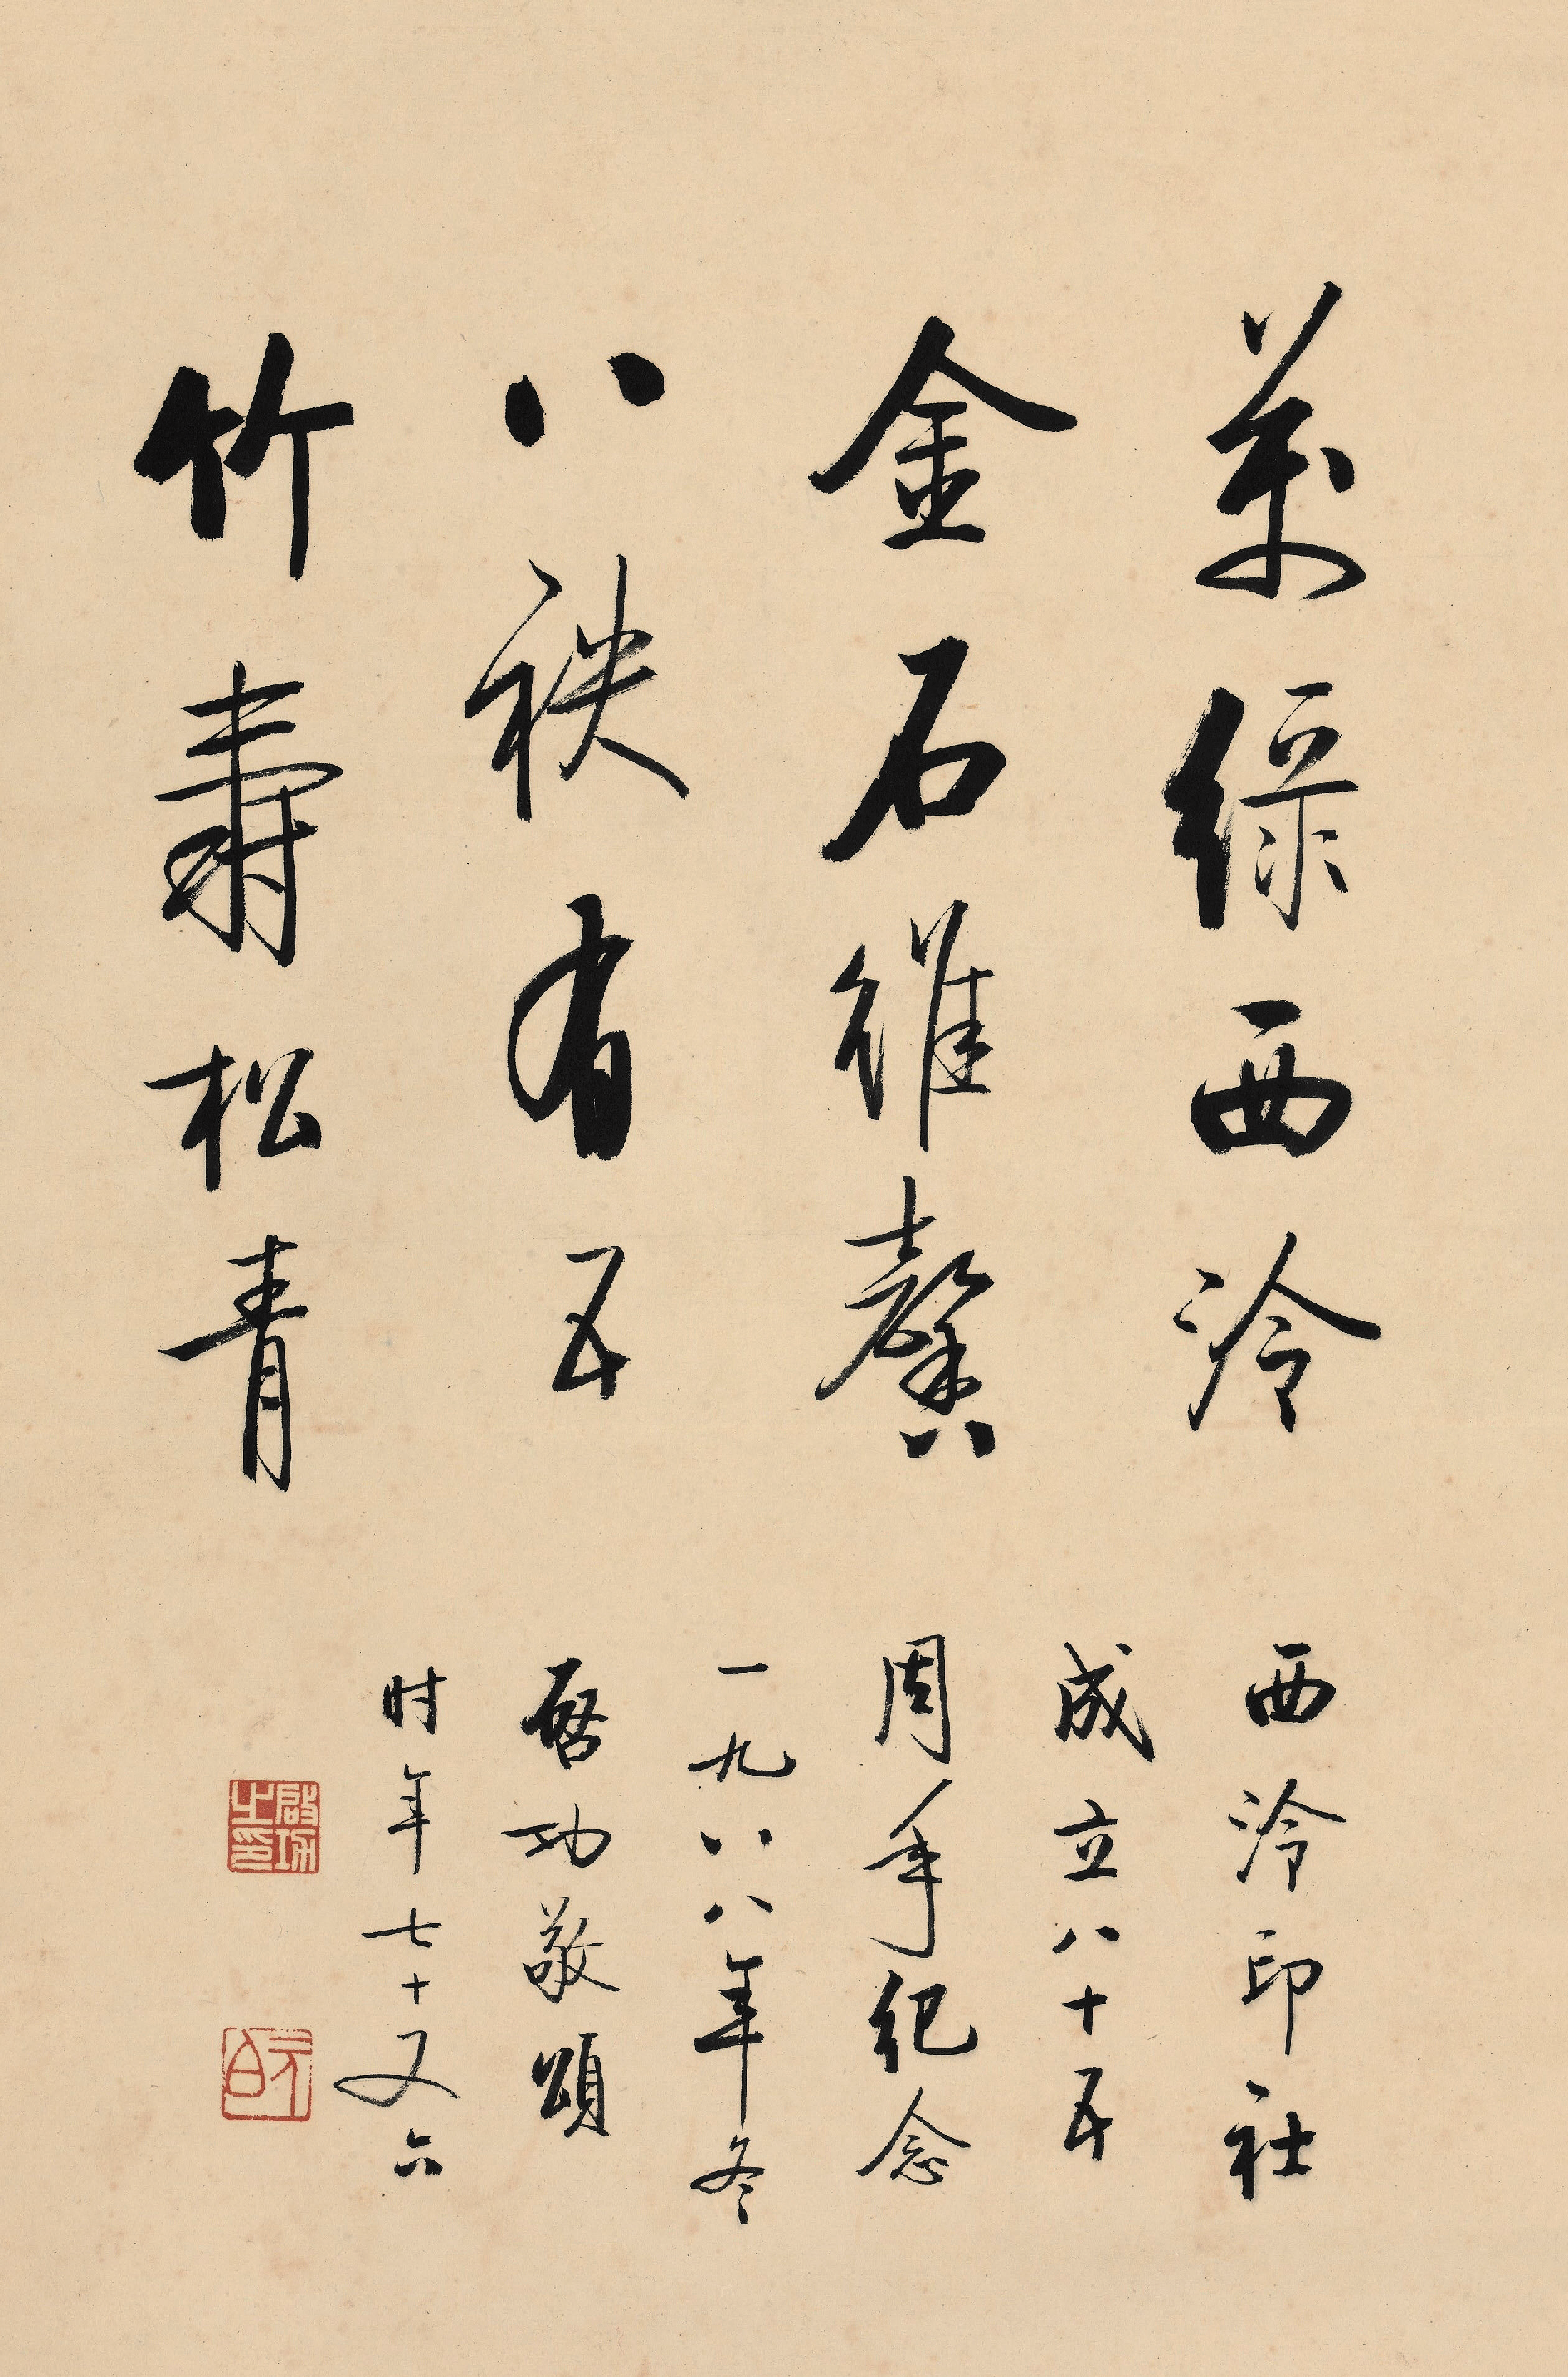 万绿西泠
金石维馨
八秩有五
竹寿松青
西泠印社
成立八十五
周年纪念
一九八八年冬
启功敬颂
时年七十又六
启功之印
元白